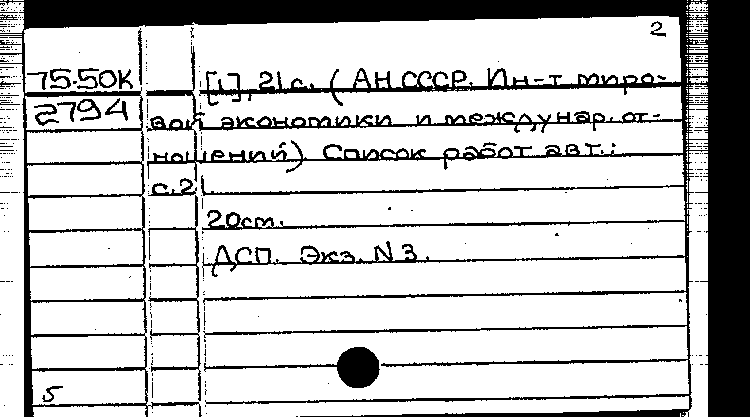 2
75-50К [1], 21 с. (АН СССР. Ин-т миро-
2794 вой экономики и междунар. от-
ношений) Список работ авт.:
с. 21.
20 см.
ДСП. Экз. N 3.
5